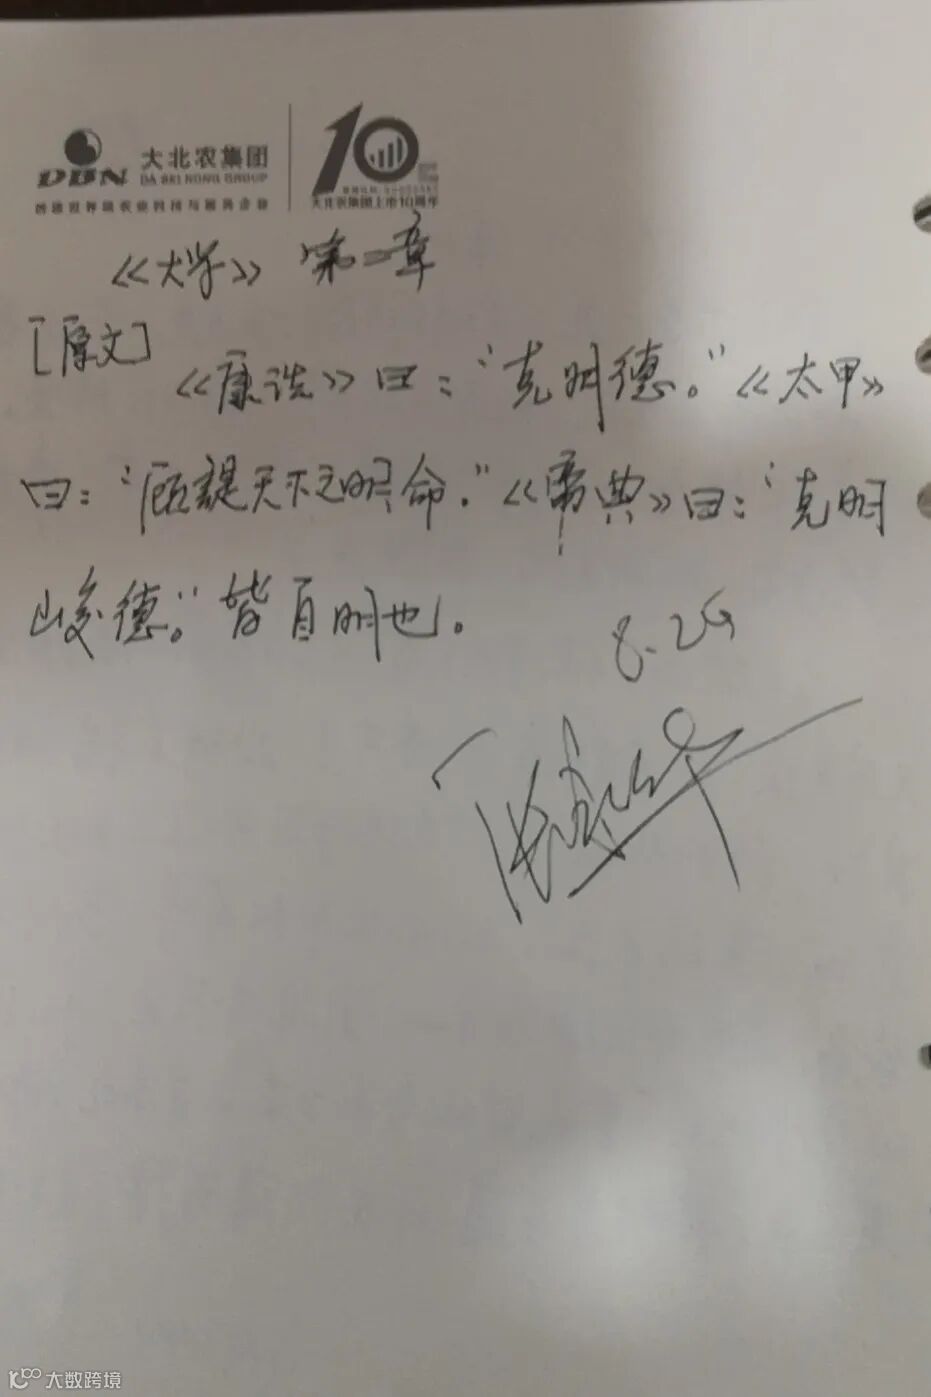 DBN 大北农集团
DA BEI NONG GROUP
创建世界级农业科技与服务企业
10
大北农集团上市10周年
《大学》 第二章
[原文]
《康诰》曰：“克明德。”《太甲》
曰：“顾諟天下之明命.”《帝典》曰：“克明
峻德。”皆自明也。
8.26
大数跨境